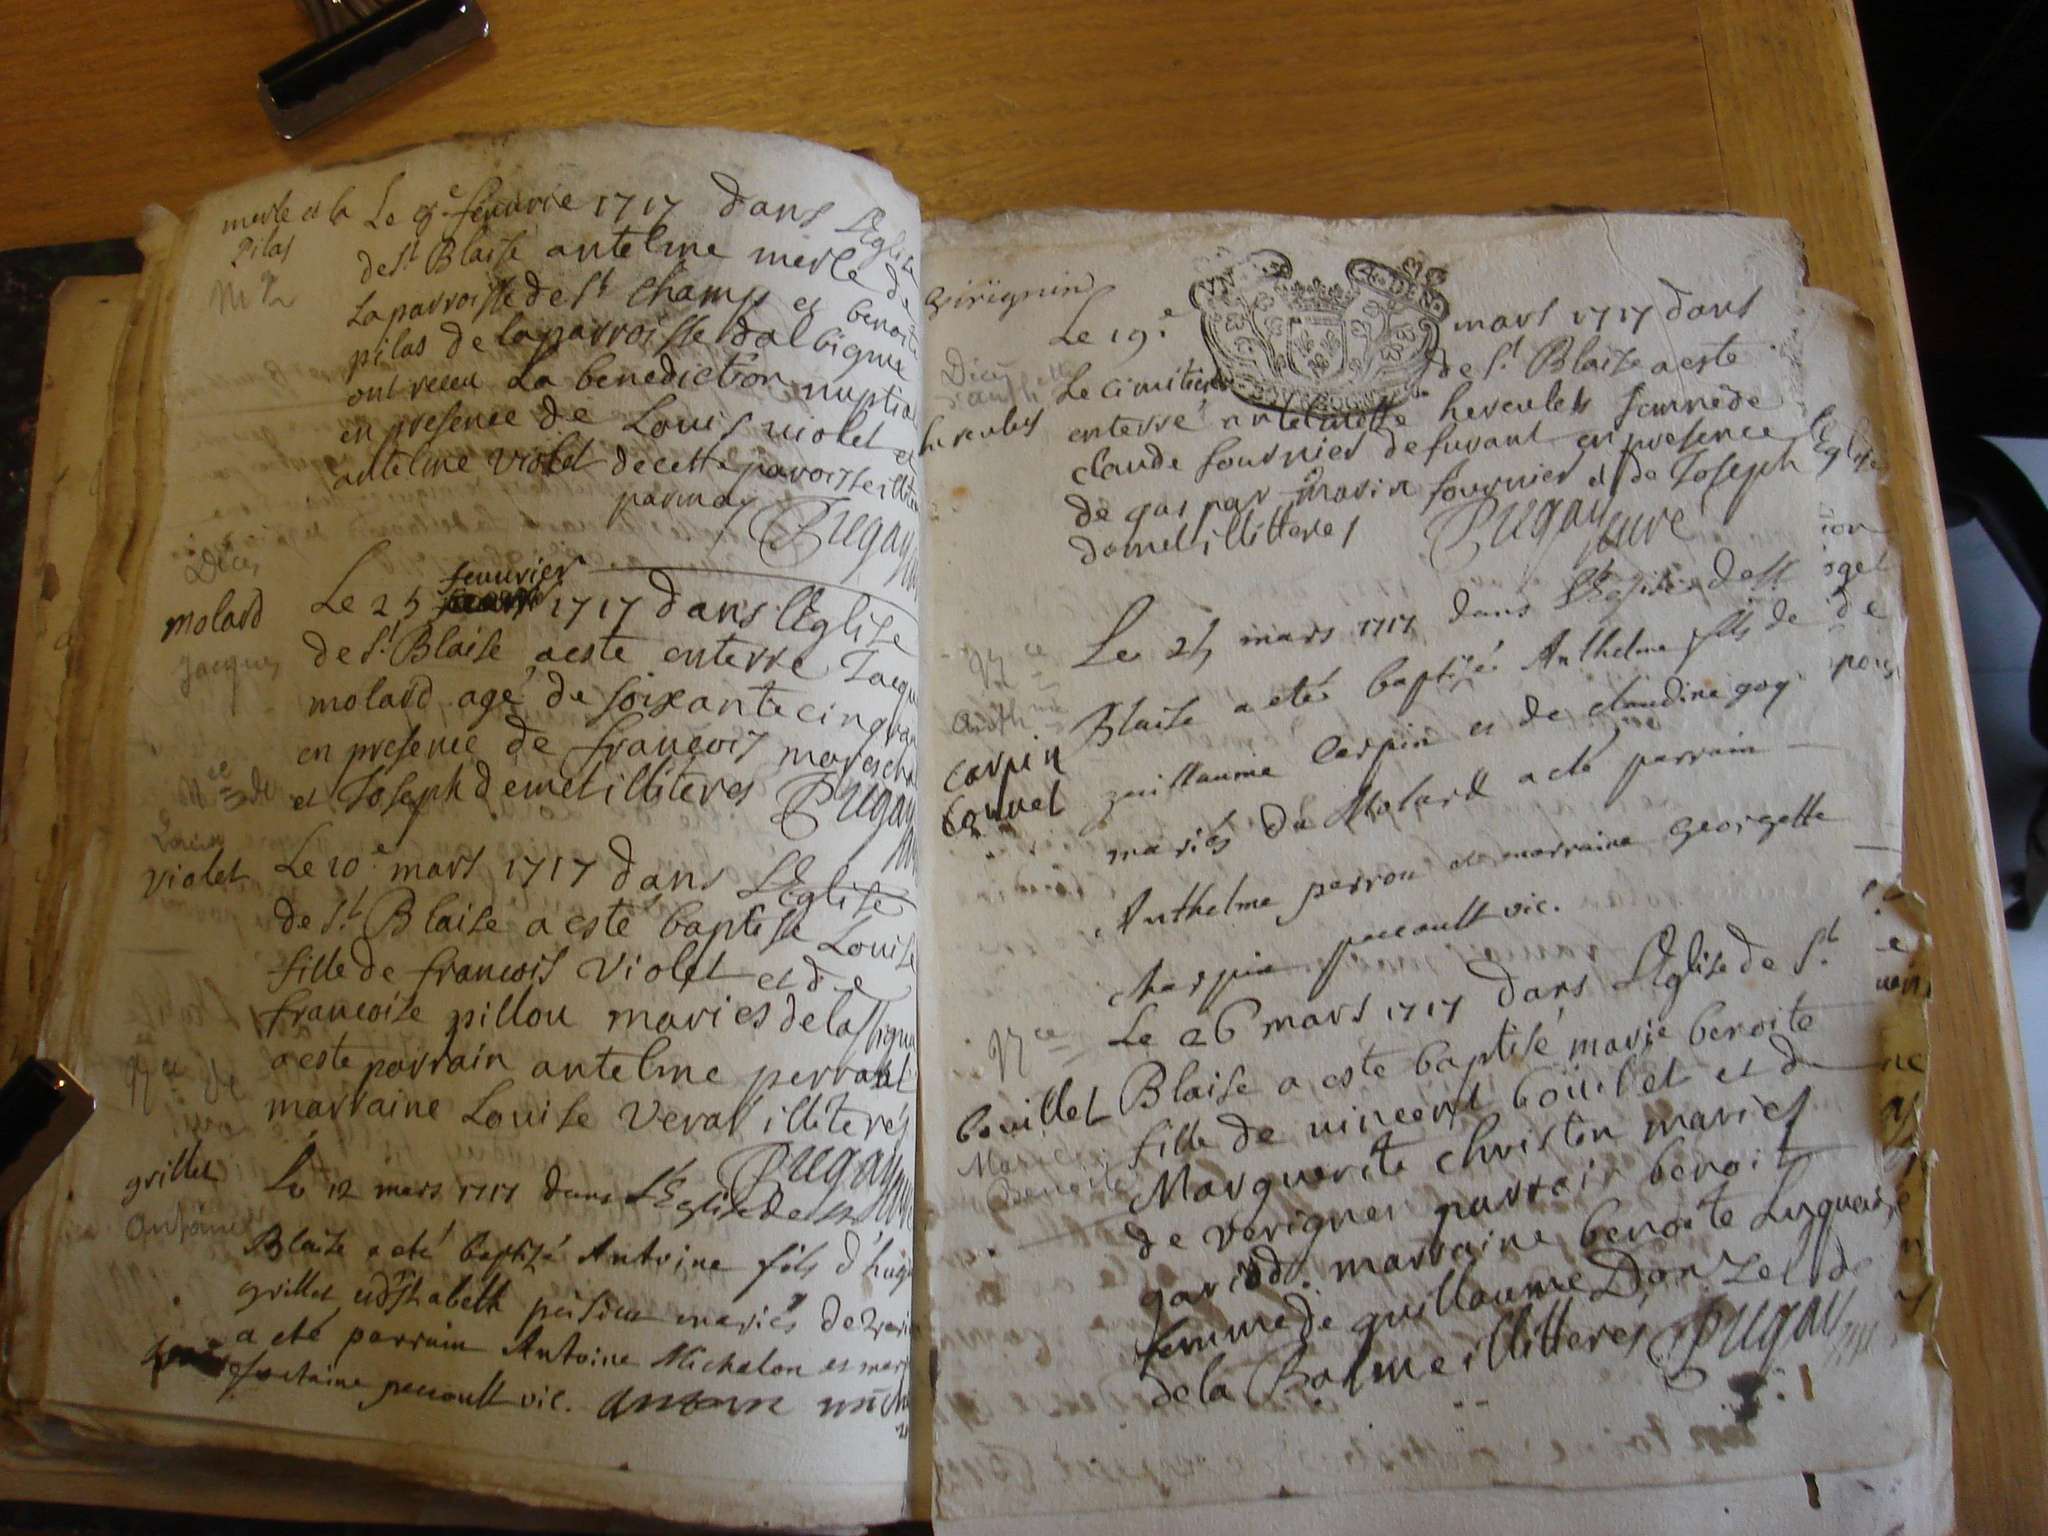 merle et la
pilas
Le 9e feuurie 1717 dans L'Eglise
de St Blaise antelme merle de
La parroisse de St champ et benoite
pilas de la parroisse dalbigneu
ont receu La benediction nuptial
en presence de Louis violet et
antelme violet de cette paroisse illiter
par moy Pugay
Deces
molard
Jacques
feuurier
Le 25 1717 dans L'Eglise
de St Blaise a este enterre Jacque
molard agé de soixante cinq an
en presence de francois marescha
et Joseph demel illiteres Pugay
violet
Le 10e mars 1717 dans L'Eglise
de St Blaise a este baptise Louise
fille de francois Violet et de
francoise pillou mariés de
a este parrain antelme perra
marraine Louise Verat illiterés
Pugay
grillet
antoine
Le 12 mars 1717 dans L'Eglise de St
Blaise a eté baptisé Antoine fils d'hugu
grillet mariés de
a eté parrain Antoine Michalon et mar
fontaine pecoult vic.
Girignin
Le 19e mars 1717 dans
Deces
Le cimitiere de St Blaise a este
hercules
enterré antelmette hercules femme de
claude fournier defurant en presence
de gaspar marin fournier et de Joseph
domel illitteres Pugay curé
Le 25 mars 1717 dans L'Eglise de St
Nce
Blaise a eté baptizé Anthelme fils de
carpin
guillaume Carpin et de claudine goy
mariés du Molard a eté parrain
Anthelme perrou et marraine Georgette
charpin pecoult vic.
Nce
Le 26 mars 1717 dans L'Eglise de St
bouillet
Blaise a este baptisé marie benoite
Marie
Benoite
fille de vincent boüillet et de
Marguerite christin mariés
de verignes parrain benoit
gariod. marraine benoite
femme de guillaume Donzel de
de la Balme illitteres Pugay